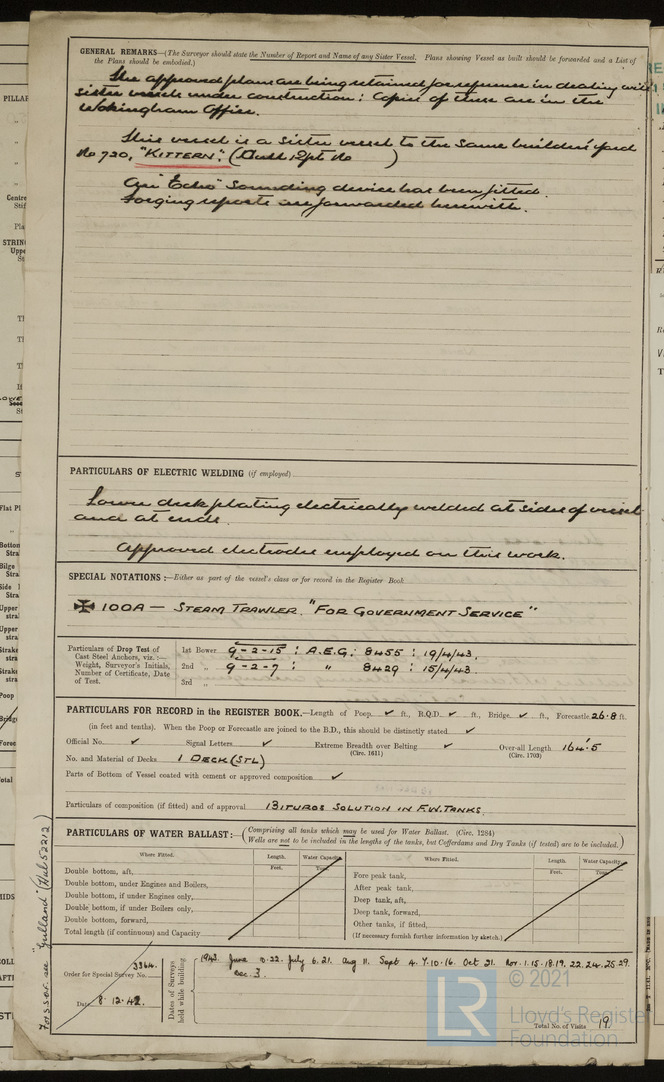 GENERAL REMARKS—(The Surveyor should state the Number of Report and Name of any Sister Vessel. Plans showing Vessel as built should be forwarded and a List of
the Plans should be embodied.)
The approved plans are being retained for reference in dealing with
sister vessels under construction: Copies of these are in the
Wokingham Office.
This vessel is a sister vessel to the same builders' yard
No 720, "KITTERN". (Hull Rpt No )
An "Echo" Sounding device has been fitted.
Forging reports are forwarded herewith.
PARTICULARS OF ELECTRIC WELDING (if employed)
Lower deck plating electrically welded at sides of vessel
and at ends.
Approved electrodes employed on this work.
SPECIAL NOTATIONS:—Either as part of the vessel's class or for record in the Register Book
✠ 100A — STEAM TRAWLER. "FOR GOVERNMENT SERVICE"
Particulars of Drop Test of
Cast Steel Anchors, viz.:—
Weight, Surveyor's Initials,
Number of Certificate, Date
of Test.
1st Bower 9-2-15 : A.E.G. : 8455 : 19/4/43.
2nd " 9-2-7 : " 8429 : 15/4/43.
3rd "
PARTICULARS FOR RECORD in the REGISTER BOOK.—Length of Poop ✓ ft., R.Q.D. ✓ ft., Bridge ✓ ft., Forecastle 26.8 ft.
(in feet and tenths). When the Poop or Forecastle are joined to the B.D., this should be distinctly stated ✓
Official No. ✓ Signal Letters ✓ Extreme Breadth over Belting ✓ Over-all Length 164'.5
(Circ. 1611) (Circ. 1703)
No. and Material of Decks 1 DECK (STL)
Parts of Bottom of Vessel coated with cement or approved composition ✓
Particulars of composition (if fitted) and of approval BITUROS SOLUTION IN F.W. TANKS.
PARTICULARS OF WATER BALLAST:—(Comprising all tanks which may be used for Water Ballast. (Circ. 1284)
Wells are not to be included in the lengths of the tanks, but Cofferdams and Dry Tanks (if tested) are to be included.)
Where Fitted. Length. Water Capacity. Where Fitted. Length. Water Capacity.
Feet. Tons. Feet. Tons.
Double bottom, aft,
Double bottom, under Engines and Boilers,
Double bottom, if under Engines only,
Double bottom, if under Boilers only,
Double bottom, forward,
Total length (if continuous) and Capacity
Fore peak tank,
After peak tank,
Deep tank, aft,
Deep tank, forward,
Other tanks, if fitted,
(If necessary furnish further information by sketch.)
Order for Special Survey No. 3364.
Date 8.12.42.
Dates of Surveys
held while building
1943. June 8.22. July 6.21. Aug 11. Sept 4.7.10.16. Oct 21. Nov. 1.15.18.19. 22.24.25.29.
Dec. 3.
Total No. of Visits 19
For S.S.O.F. see "Gulland" (Hul 52212)
© 2021
LR
Lloyd's Register
Foundation